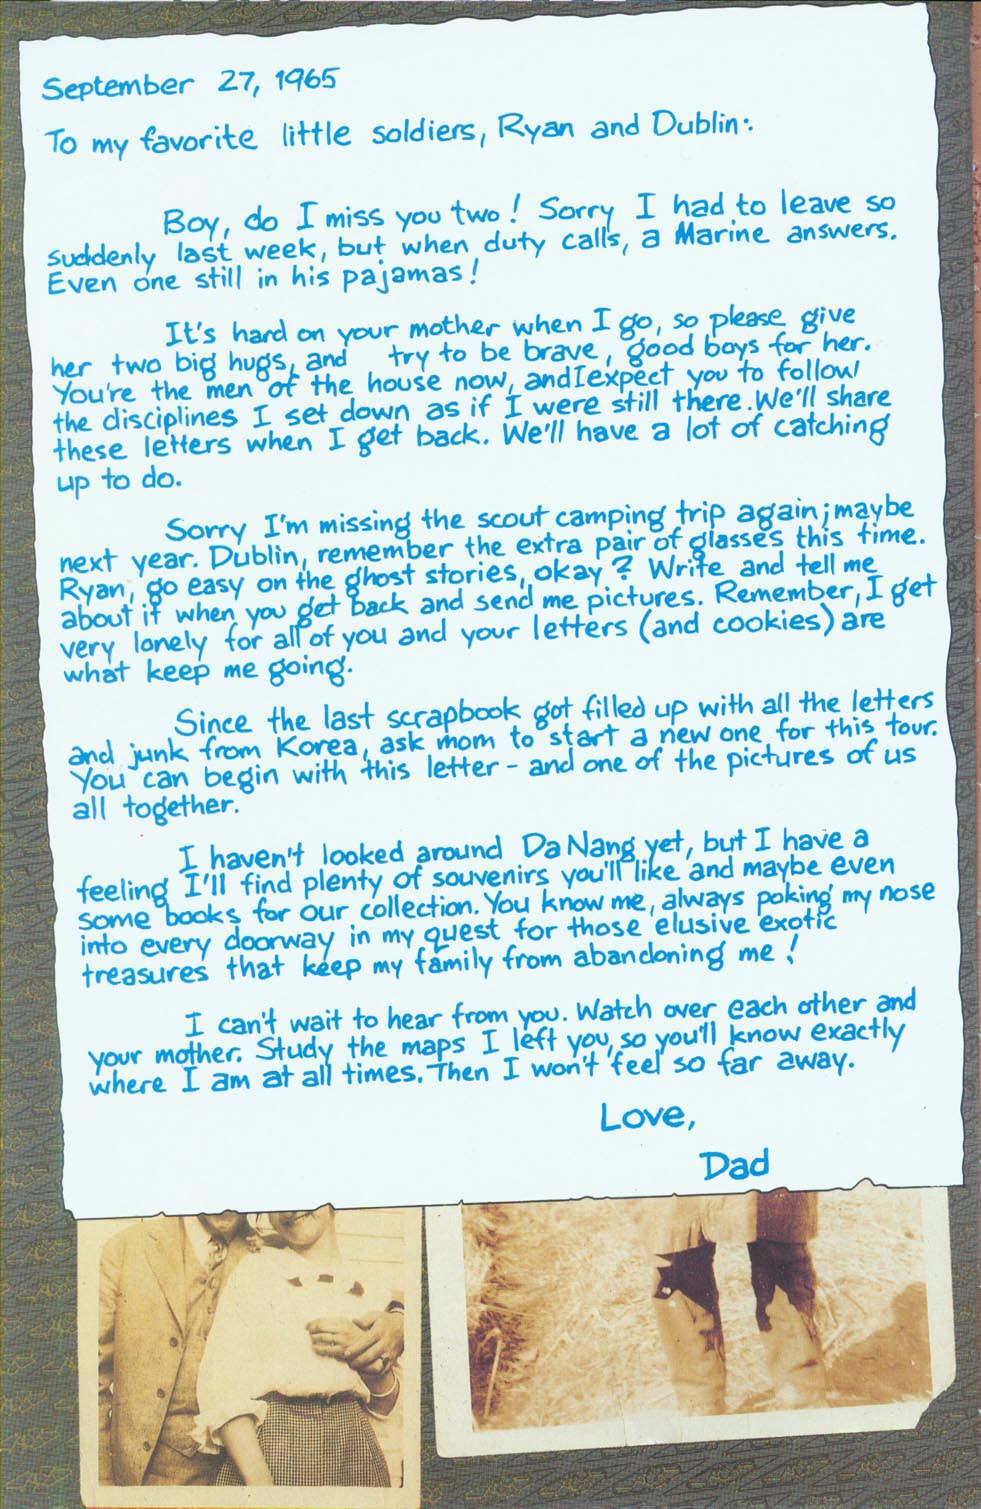 September 27, 1965
To my favorite little soldiers, Ryan and Dublin:
Boy, do I miss you two! Sorry I had to leave so
suddenly last week, but when duty calls, a Marine answers.
Even one still in his pajamas!
It's hard on your mother when I go, so please give
her two big hugs, and try to be brave, good boys for her.
You're the men of the house now, and I expect you to follow
the disciplines I set down as if I were still there. We'll share
these letters when I get back. We'll have a lot of catching
up to do.
Sorry I'm missing the scout camping trip again; maybe
next year. Dublin, remember the extra pair of glasses this time.
Ryan, go easy on the ghost stories, okay? Write and tell me
about it when you get back and send me pictures. Remember, I get
very lonely for all of you and your letters (and cookies) are
what keep me going.
Since the last scrapbook got filled up with all the letters
and junk from Korea, ask mom to start a new one for this tour.
You can begin with this letter - and one of the pictures of us
all together.
I haven't looked around Da Nang yet, but I have a
feeling I'll find plenty of souvenirs you'll like and maybe even
some books for our collection. You know me, always poking my nose
into every doorway in my quest for those elusive exotic
treasures that keep my family from abandoning me!
I can't wait to hear from you. Watch over each other and
your mother. Study the maps I left you, so you'll know exactly
where I am at all times. Then I won't feel so far away.
Love,
Dad